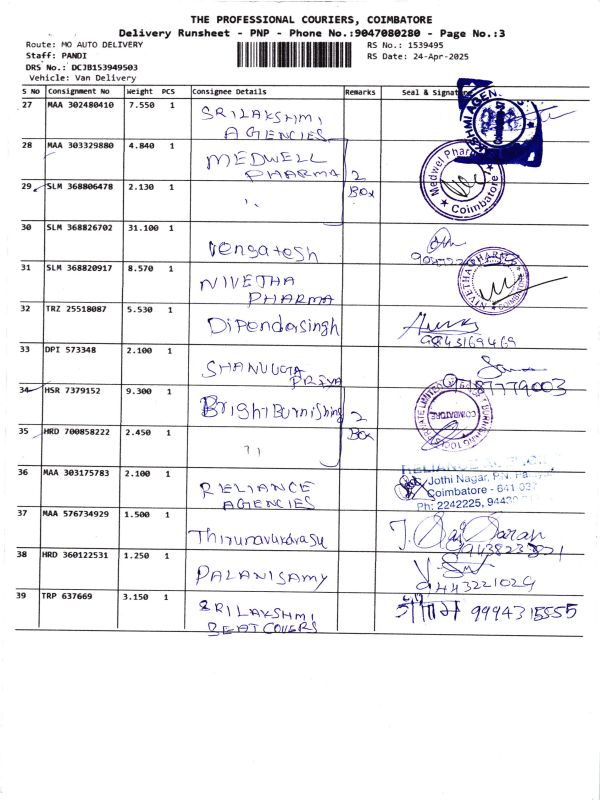 THE PROFESSIONAL COURIERS, COIMBATORE
Delivery Runsheet - PNP - Phone No.:9047080280 - Page No.:3
Route: MO AUTO DELIVERY RS No.: 1539495
Staff: PANDI RS Date: 24-Apr-2025
DRS No.: DCJB153949503
Vehicle: Van Delivery
S No Consignment No Weight PCS Consignee Details Remarks Seal & Signature
27 MAA 302480410 7.550 1 SRILAKSHMI
AGENCIES
28 MAA 303329880 4.840 1 MEDWELL
PHARMA 2
Box
Medwel Pharma
Coimbatore
29 SLM 368806478 2.130 1 "
30 SLM 368826702 31.100 1 Vengatesh
31 SLM 368820917 8.570 1 NIVETHA
PHARMA
NIVETHA PHARMA
COIMBATORE
32 TRZ 25518087 5.530 1 Dipendarsingh
9843169469
33 DPI 573348 2.100 1
34 HSR 7379152 9.300 1 Bright Burnishing 2
Box
COIMBATORE
35 HRD 700858222 2.450 1 "
36 MAA 303175783 2.100 1 RELIANCE
AGENCIES
Jothi Nagar, P.N.
Coimbatore - 641 037
Ph: 2242225,
37 MAA 576734929 1.500 1
38 HRD 360122531 1.250 1 PALANISAMY
9443221029
39 TRP 637669 3.150 1 SRILAKSHMI
SEAT COVERS
9994315555